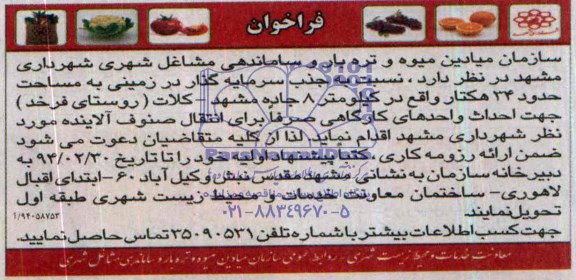 فراخوان
سازمان میادین میوه و تره بار و ساماندهی مشاغل شهری شهرداری
مشهد در نظر دارد ، نسبت به جذب سرمایه گذار در زمینی به مساحت
حدود ۳۴ هکتار واقع در کیلومتر ۸ جاده مشهد - کلات ( روستای فرخد )
جهت احداث واحدهای کارگاهی صرفا برای انتقال صنوف آلاینده مورد
نظر شهرداری مشهد اقدام نماید. لذا از کلیه متقاضیان دعوت می شود
ضمن ارائه رزومه کاری ، کتباً پیشنهاد اولیه خود را تا تاریخ ۹۴/۰۲/۳۰ به
دبیرخانه سازمان به نشانی : مشهد مقدس - نبش وکیل آباد ۶۰ - ابتدای اقبال
لاهوری - ساختمان معاونت خدمات و محیط زیست شهری طبقه اول
تحویل نمایند.
۰۲۱-۸۸۳۴۹۶۷۰-۵
۱/۹۴۰۵۸۷۵۳
جهت کسب اطلاعات بیشتر با شماره تلفن ۳۵۰۹۰۵۳۱ تماس حاصل نمایید.
معاونت خدمات و محیط زیست شهری - روابط عمومی سازمان میادین میوه و تره بار و ساماندهی مشاغل شهری